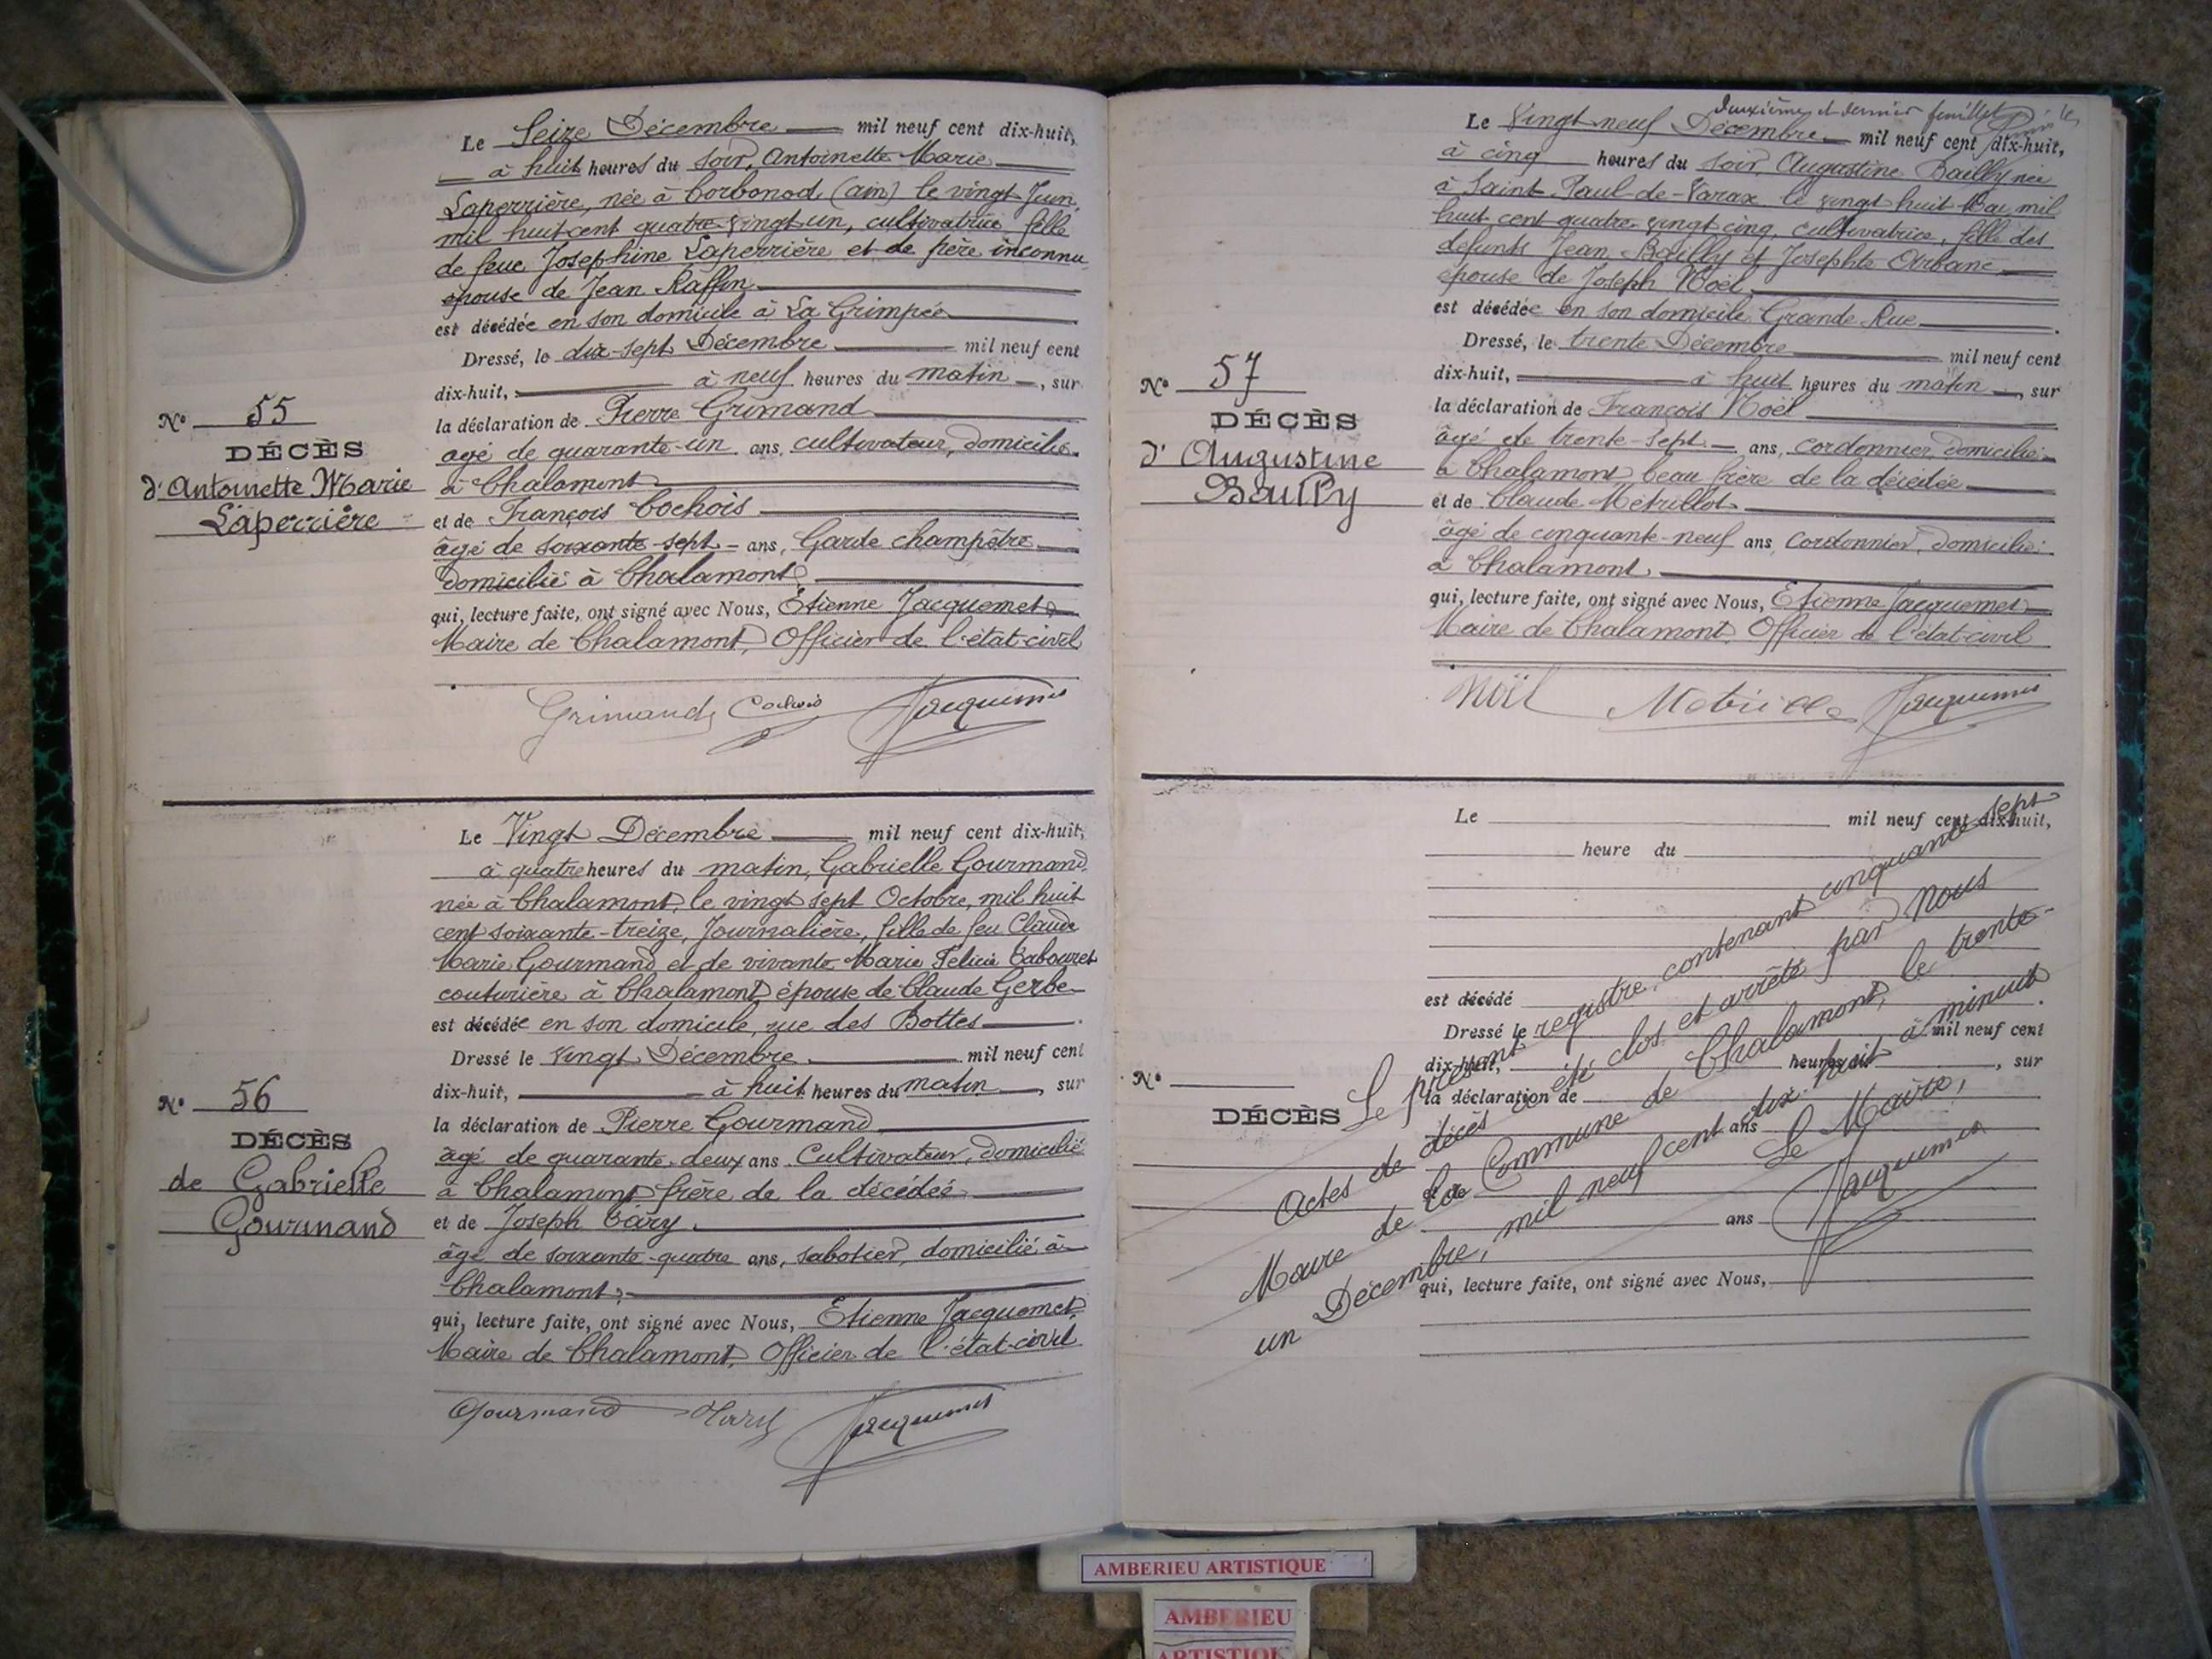 Le Seize Décembre mil neuf cent dix-huit,
à huit heures du soir, Antoinette Marie
Laperrière, née à Corbonod (ain) le vingt Juin
mil huit cent quatre-vingt un, cultivatrice, fille
de feue Josephine Laperrière et de père inconnu
épouse de Jean Raffin
est décédée en son domicile à La Grimpée
Dressé, le dix-sept Décembre mil neuf cent
dix-huit, à neuf heures du matin, sur
la déclaration de Pierre Grimand
agé de quarante-un ans, cultivateur, domicilié
à Chalamont
et de François Cochois
âgé de soixante-sept ans, Garde champêtre
domicilié à Chalamont
qui, lecture faite, ont signé avec Nous, Etienne Jacquemet
Maire de Chalamont, Officier de l'état-civil
Nº 55
DÉCÈS
d'Antoinette Marie
Laperrière
Grimand Cochois Jacquemet
Le Vingt Décembre mil neuf cent dix-huit,
à quatre heures du matin, Gabrielle Gourmand
née à Chalamont, le vingt sept Octobre, mil huit
cent soixante-treize, Journalière, fille de feu Claude
Marie Gourmand et de vivante Marie Felicie Cabouret
couturière à Chalamont, épouse de Claude Gerbe
est décédée en son domicile, rue des Bottes
Dressé le Vingt Décembre mil neuf cent
dix-huit, à huit heures du matin, sur
la déclaration de Pierre Gourmand
âgé de quarante-deux ans Cultivateur, domicilié
à Chalamont frère de la décédée
et de Joseph
âgé de soixante-quatre ans, sabotier, domicilié à
Chalamont,
qui, lecture faite, ont signé avec Nous, Etienne Jacquemet
Maire de Chalamont, Officier de l'état-civil
Nº 56
DÉCÈS
de Gabrielle
Gourmand
Gourmand Jacquemet
deuxième et dernier feuillet
Le Vingt neuf Décembre mil neuf cent dix-huit,
à cinq heures du soir, Augustine Bailly née
à Saint-Paul-de-Varax le vingt huit Mai mil
huit cent quatre-vingt cinq, cultivatrice, fille des
defunts Jean Bailly et Josephte
épouse de Joseph Noël
est décédée en son domicile Grande Rue
Dressé, le trente Décembre mil neuf cent
dix-huit, à huit heures du matin, sur
la déclaration de François Noël
âgé de trente-sept ans, cordonnier, domicilié
à Chalamont, beau frère de la décédée
et de Claude Metrillot
âgé de cinquante-neuf ans, Cordonnier, domicilié
à Chalamont,
qui, lecture faite, ont signé avec Nous, Etienne Jacquemet
Maire de Chalamont, Officier de l'état-civil
Nº 57
DÉCÈS
d'Augustine
Bailly
Noël Jacquemet
Le mil neuf cent dix-huit,
heure du
est décédé
Dressé le mil neuf cent
dix-huit, heure du, sur
la déclaration de
ans
et de
ans
qui, lecture faite, ont signé avec Nous,
Nº
DÉCÈS
Le présent registre, contenant cinquante sept
Actes de décès a été clos et arrêté par Nous
Maire de la Commune de Chalamont, le trente-
un Décembre, mil neuf cent dix-huit à minuit
Le Maire,
Jacquemet
AMBERIEU ARTISTIQUE
AMBERIEU
ARTISTIQUE